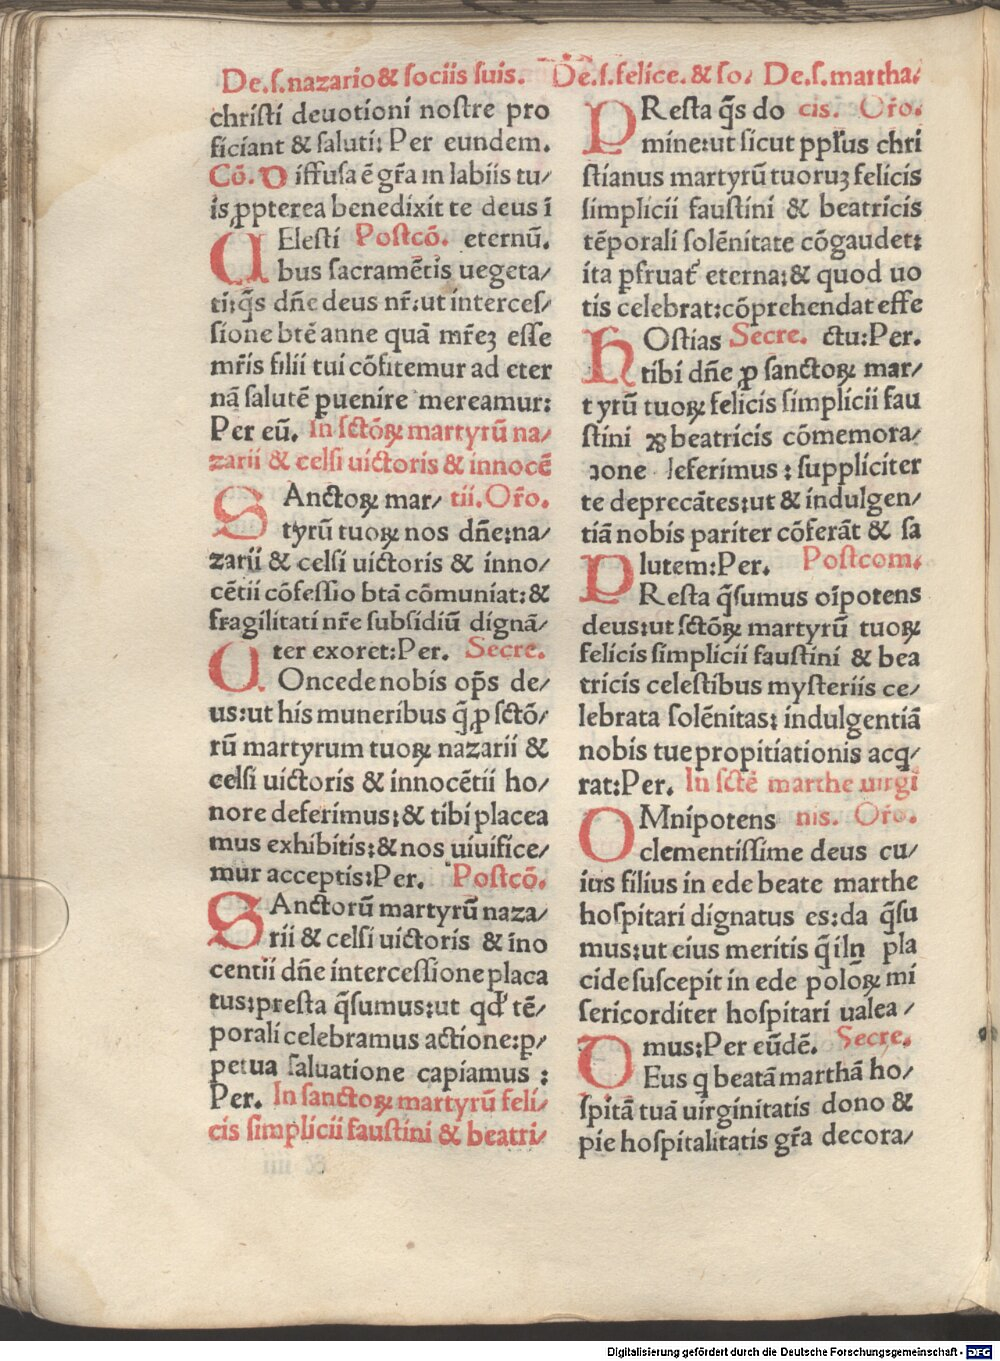 De.ſ.nazario & ſociis ſuis. De.ſ.felice. & ſo/ De.ſ.martha/
chriſti deuotioni noſtre pro
ficiant & ſaluti: Per eundem.
Cō. Diffuſa ē gr̄a in labiis tu/
is ꝓpterea benedixit te deus ī
CEleſti Poſtcō. eternū.
bus ſacramētis uegeta/
ti: q̄s dn̄e deus nr̄: ut interceſ/
ſione btē anne quā mr̄eꝫ eſſe
mr̄is filii tui cōfitemur ad eter
nā ſalutē ꝑuenire mereamur:
Per eū. In ſctōꝝ martyrū na/
zarii & celſi uictoris & innocē
SAnctoꝝ mar/ tii. Or̄o.
tyrū tuoꝝ nos dn̄e: na/
zarii & celſi uictoris & inno/
cētii cōfeſſio btā cōmuniat: &
fragilitati nr̄e ſubſidiū dignā/
ter exoret: Per. Secre.
COncede nobis op̄s de/
us: ut his muneribus q̄ ꝓ ſctō/
rū martyrum tuoꝝ nazarii &
celſi uictoris & innocētii ho/
nore deferimus: & tibi placea
mus exhibitis: & nos uiuifice/
mur acceptis: Per. Poſtcō.
SAnctorū martyrū naza/
rii & celſi uictoris & īno
centii dn̄e interceſſione placa
tus: preſta q̄ſumus: ut qd' tē/
porali celebramus actione: ꝑ/
petua ſaluatione capiamus :
Per. In ſanctoꝝ martyrū feli/
cis ſimplicii fauſtini & beatri/
PReſta q̄s do cis. Or̄o.
mine: ut ſicut ppl̄us chri
ſtianus martyrū tuoruꝫ felicis
ſimplicii fauſtini & beatricis
tēporali ſolēnitate cōgaudet:
ita ꝑfruat̄ eterna: & quod uo
tis celebrat: cōprehendat effe
HOſtias Secre. ctu: Per.
tibi dn̄e ꝓ ſanctoꝝ mar/
tyrū tuoꝝ felicis ſimplicii fau
ſtini & beatricis cōmemora/
ione deferimus : ſuppliciter
te deprecātes: ut & indulgen/
tiā nobis pariter cōferāt & ſa
lutem: Per. Poſtcom.
PReſta q̄ſumus oīpotens
deus: ut ſctōꝝ martyrū tuoꝝ
felicis ſimplicii fauſtini & bea
tricis celeſtibus myſteriis ce/
lebrata ſolēnitas: indulgentiā
nobis tue propitiationis acq̄/
rat: Per. In ſctē marthe uirgi
OMnipotens nis. Or̄o.
clementiſſime deus cu/
ius filius in ede beate marthe
hoſpitari dignatus es: da q̄ſu
mus: ut eius meritis q̄ iln̄ pla
cide ſuſcepit in ede poloꝝ mi
ſericorditer hoſpitari ualea/
mus: Per eūdē. Secre.
DEus q beatā marthā ho/
ſpitā tuā uirginitatis dono &
pie hoſpitalitatis gr̄a decora/
Digitalisierung gefördert durch die Deutsche Forschungsgemeinschaft - DFG